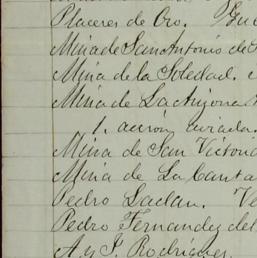 Placeres de Oro.
Mina de San Antonio de
Mina de la Soledad.
Mina de La Arizona
1. accion aviada.
Mina de San
Mina de La Canta
Pedro Ladan. Ve
Pedro Fernandez del
A y J. Rodriguez.